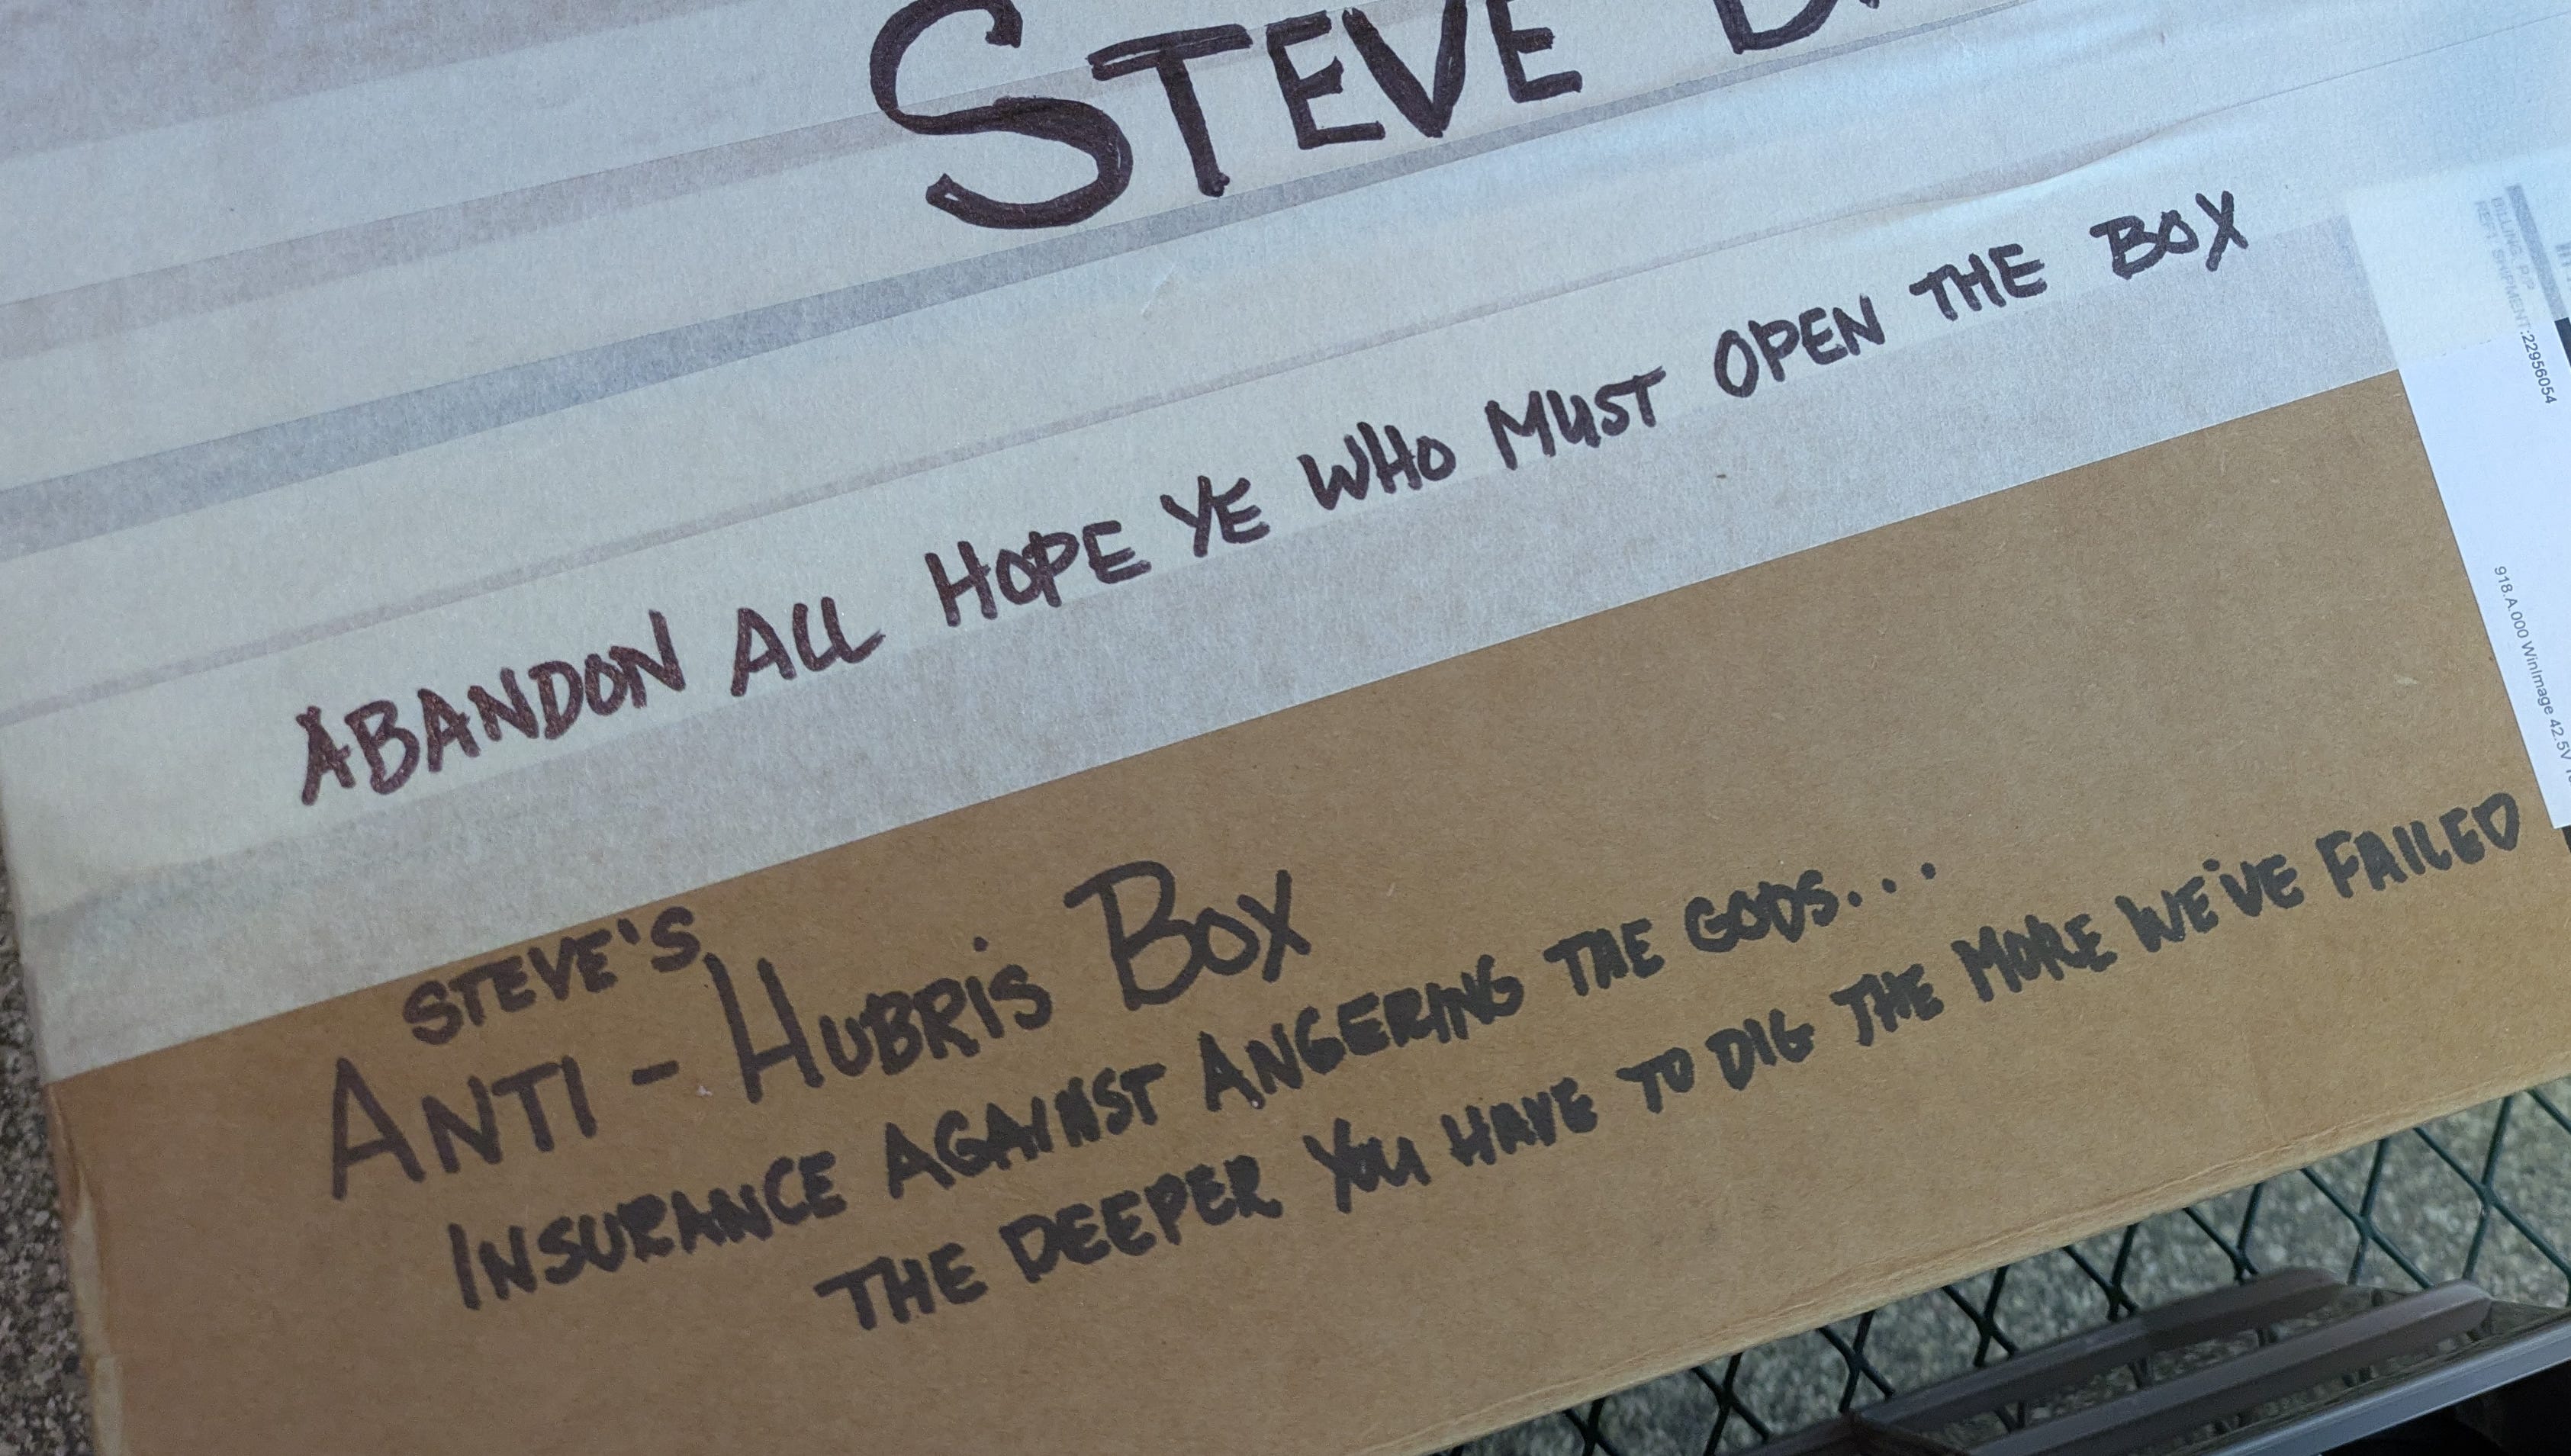 STEVE
ABANDON ALL HOPE YE WHO MUST OPEN THE BOX
STEVE'S
ANTI-HUBRIS BOX
INSURANCE AGAINST ANGERING THE GODS...
THE DEEPER YOU HAVE TO DIG THE MORE WE'VE FAILED
BILLING: P/P
REF1 SHIPMENT:22956054
918.A.000 WinImage 42.5V